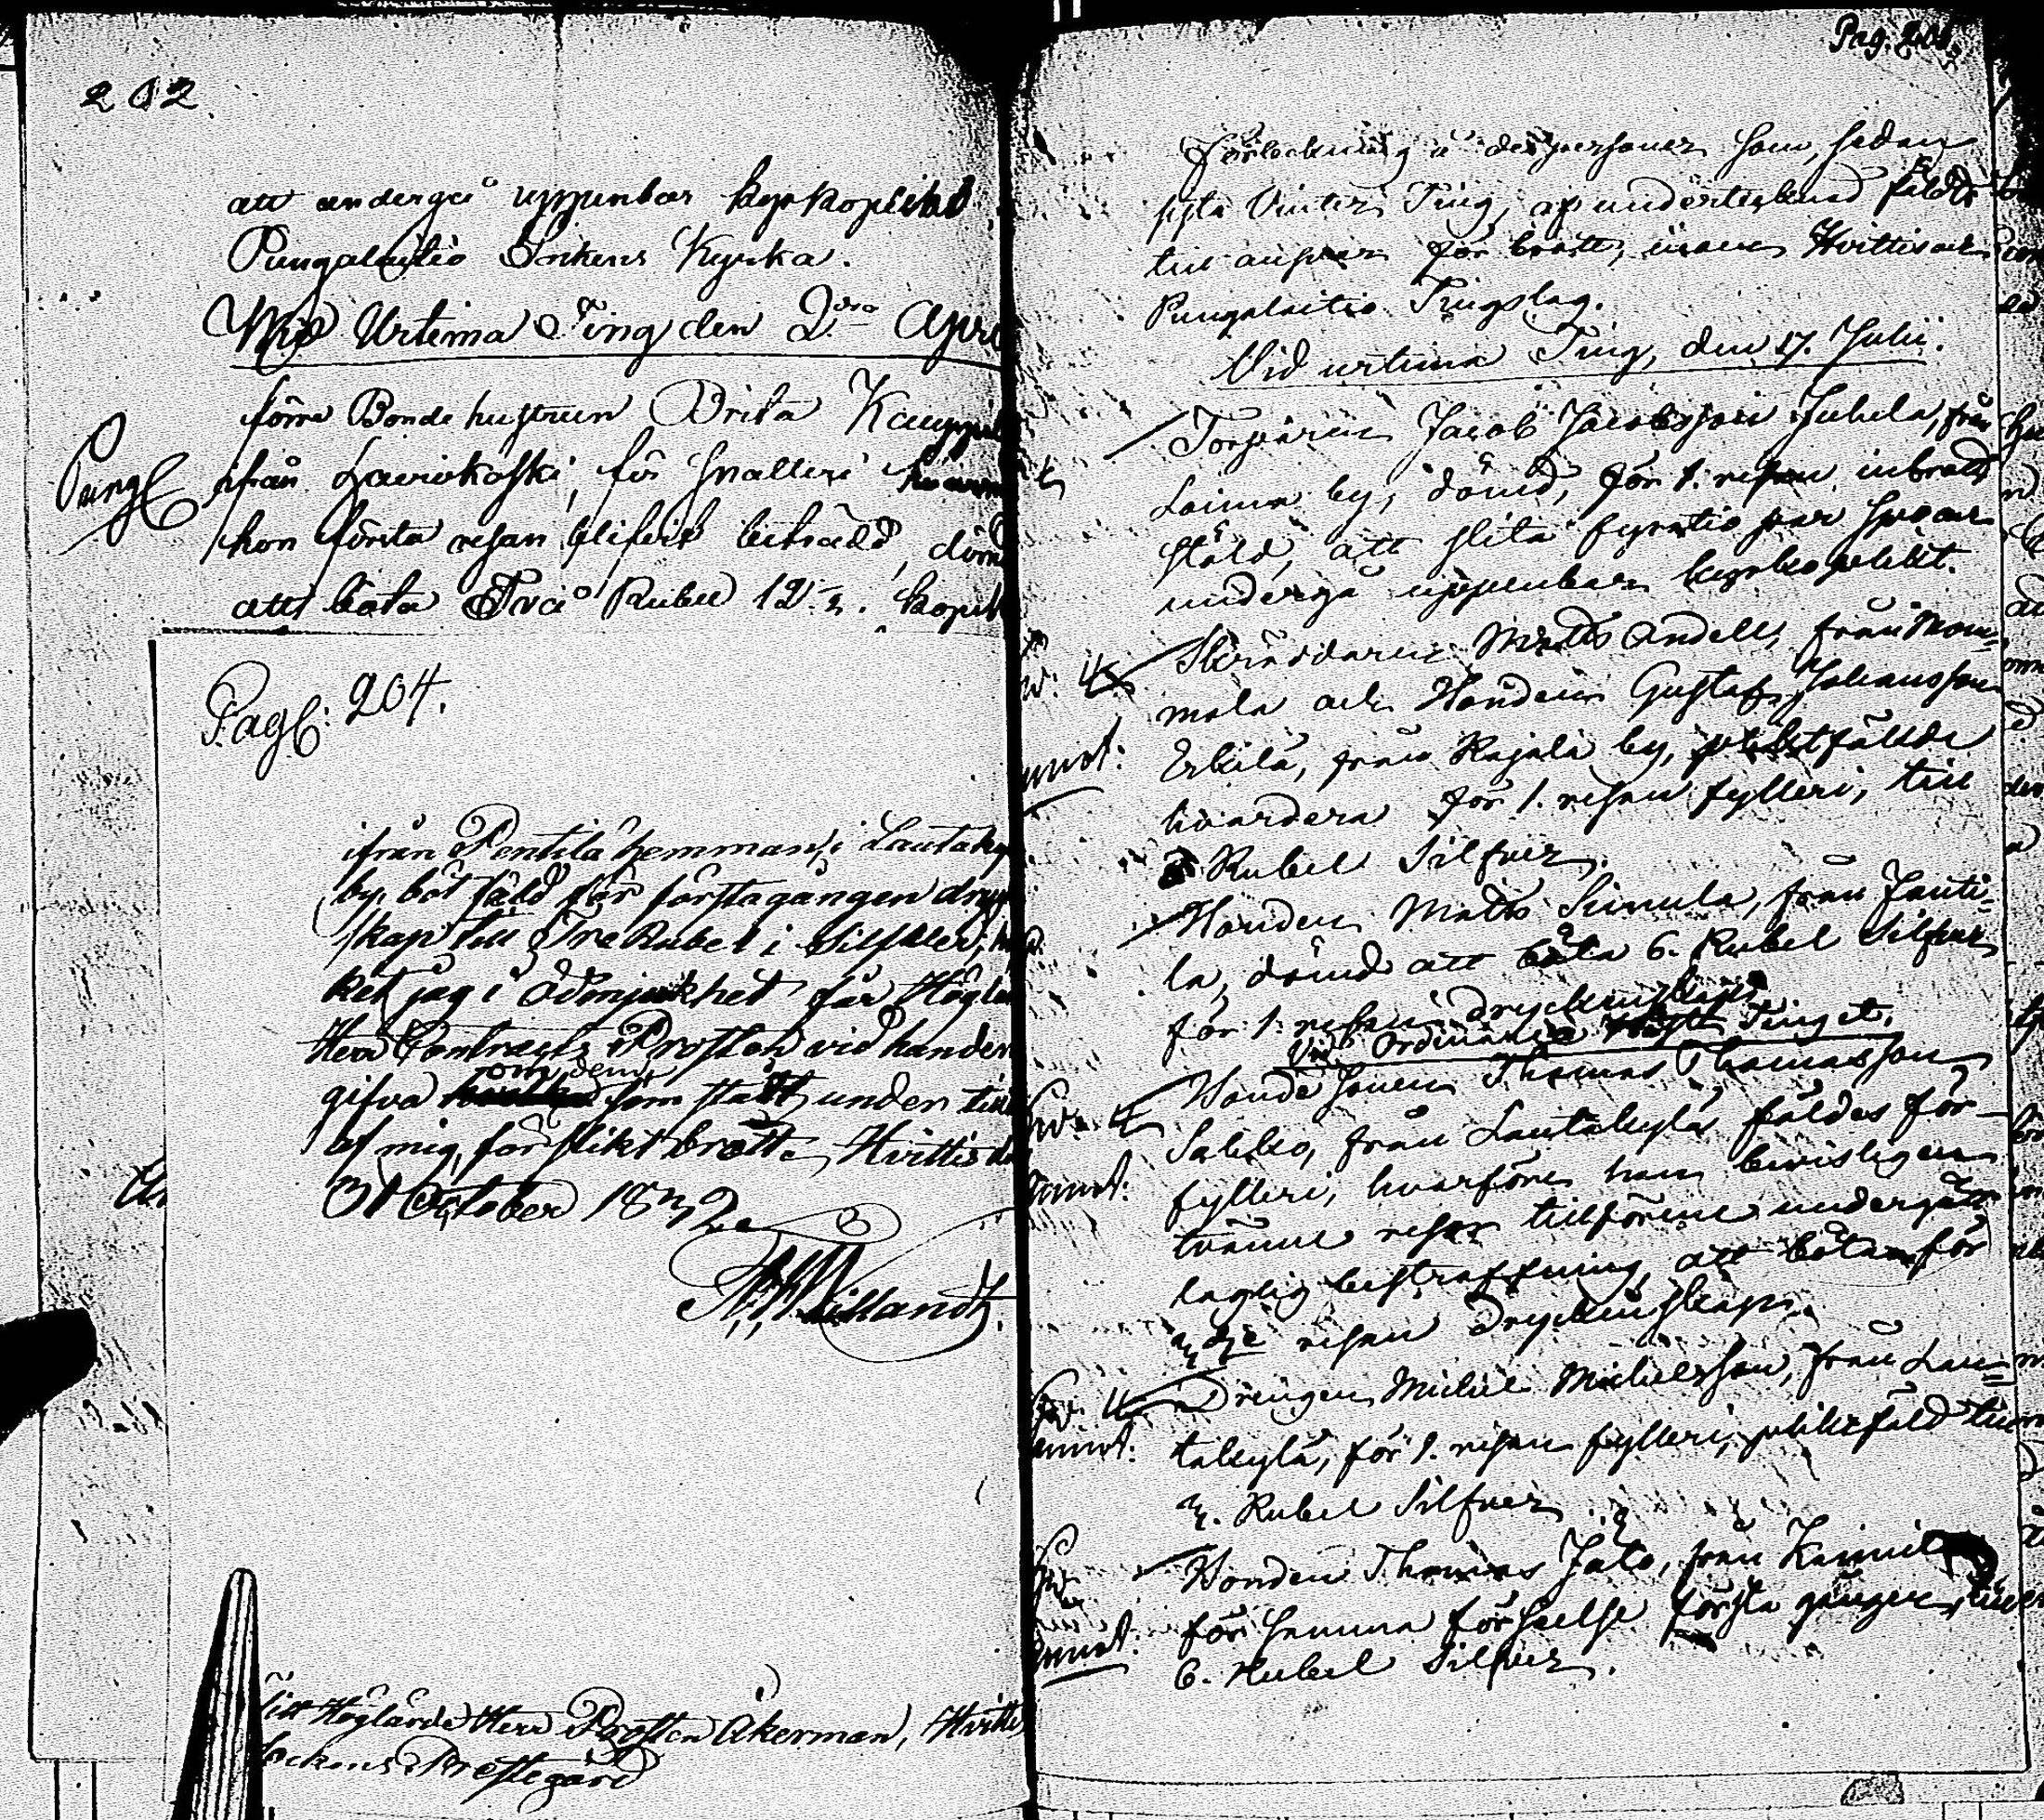 202
att undergå uppenbar kyrkoplikt
Pungalaitio Sockens Kyrka.
Wid Urtima Ting den 2dra Apri
förre Bonde hustrun Brita Kauppi
Pungl
ifrån Lauriokoski, för snatteri hvarmed
hon första resan blifvit beträdd, dömd
att böta Två Rubel 12 ½. kopek
Pag: 204.
ifrån Pentilä hemman, i Lautaky
by, böt fäld för förstagången dryck
skap till Tre Rubel i Silfver;
ket jag i Ödmjukhet får Höglä
Herr Contracts Prosten vid handen
gifva om dem som stått under till
af mig, för slikt brott. Hvittis d
31 October 1832
Litt Höglärde Herr Prosten Åkerman, Hvittis
Sockens Prestegård
Pag.
förteckning å de personer som, sedan
sista Vinter Ting, af undertecknad fäldts
till ansvar för brott, inom Hvittis och
Pungalaitio Tingslag.
Vid urtima Ting, den 17. Julii.
Torparen Jacob Jacobsson Juhela, från
Loima by, dömd, för 1. resan inbrott
stöld, att slita fyratio par spö och
undergå uppenbar kyrkoplikt.
Skräddaren Matts Andell, från Mom=
mola och Bonden Gustaf Johansson
Erkilä, från Rajala by, pliktfällde
hvardera för 1. resan fylleri, till
3 Rubel Silfver.
Bonden Matts Simula, från Janti=
la, dömd att böta 6. Rubel Silfver
för 1. resan dryckenskap
Vid Ordinarie Tinget.
Bonde Sonen Thomas Thomasson
Sakko, från Lautakylä fäldes för
fylleri, hvarföre han bevisligen
tvänne resor tillförene undergått
laglig bestraffning, att böta för
3dje resan dryckenskap.
Drängen Michel Michelsson, från Lau=
takylä, för 1. resan fylleri, pliktfäld till
3. Rubel Silfver
Bonden Thomas Jäto, från
för samma förseelse första gången, till
6. Rubel Silfver.